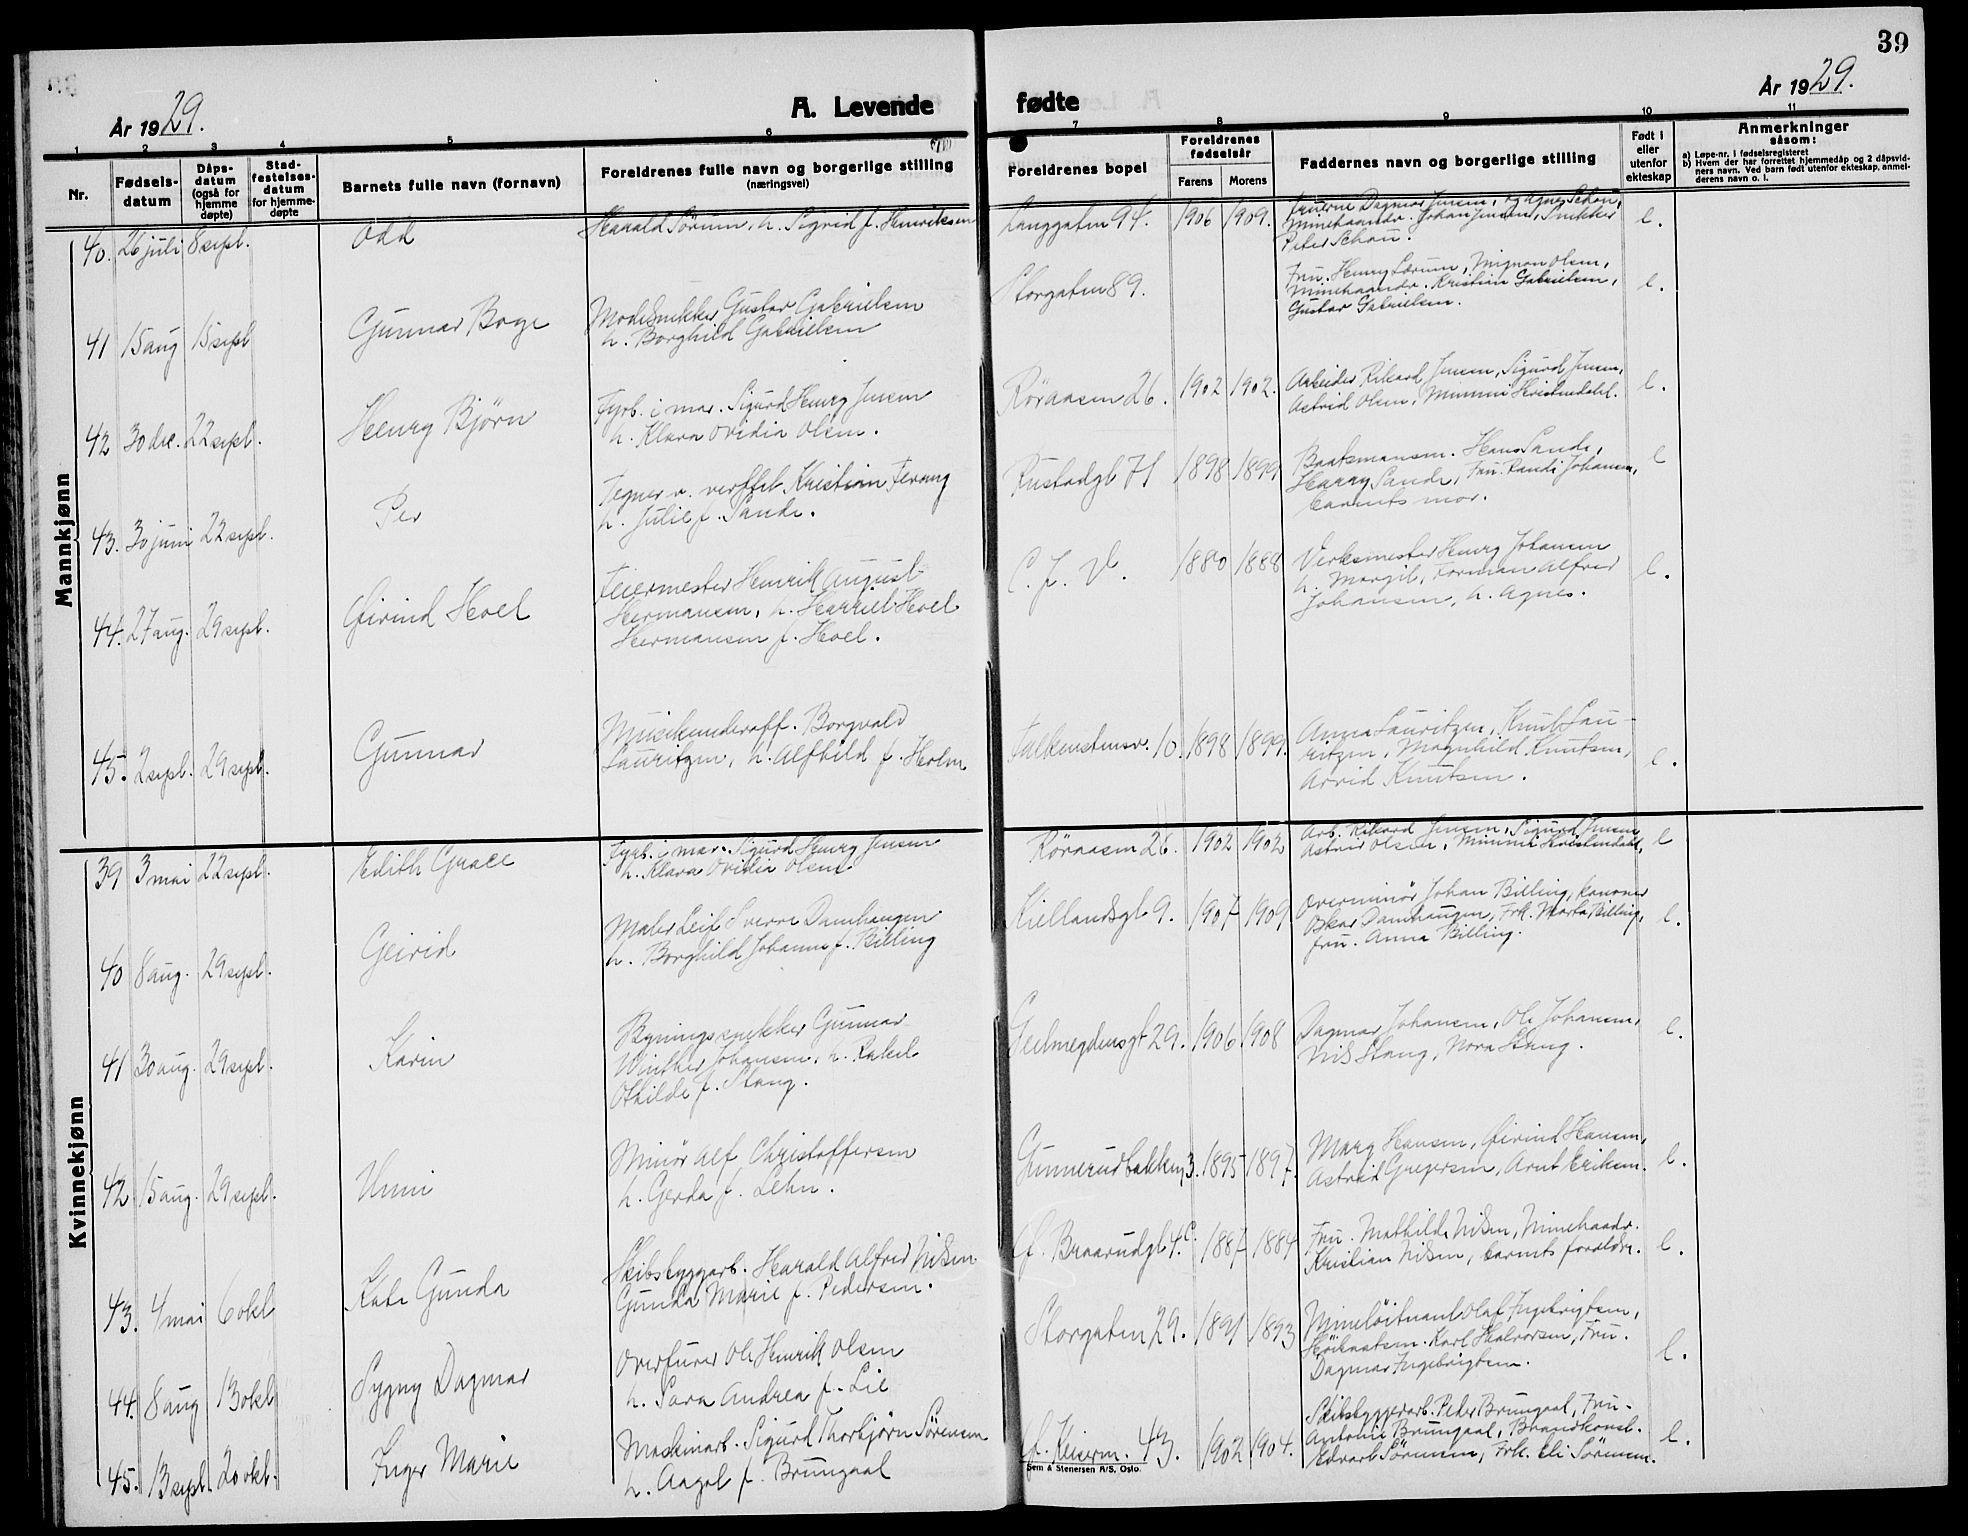 39
År 1929.
A. Levende
fødte
År 1929.
1 2 3 4 5 6 7 8 9 10 11
Nr.
Fødsels-
datum
Dåps-
datum
(også for
hjemme
døpte)
Stad-
festelses-
datum
for hjemme-
døpte
Barnets fulle navn (fornavn)
Foreldrenes fulle navn og borgerlige stilling
(næringsvei)
Foreldrenes bopel
Foreldrenes
fødselsår
Farens
Morens
Faddernes navn og borgerlige stilling
Født i
eller
utenfor
ekteskap
Anmerkninger
såsom:
a) Løpe-nr. i fødselsregisteret
b) Hvem der har forrettet hjemmedåp og 2 dåpsvid-
ners navn. Ved barn født utenfor ekteskap, anmel-
derens navn o. l.
Mannkjønn
40. 26 juli 8 sept. Odd
Harald Sørum, h. Sigrid f. Henriksen
Langgaten 94. 1906 1909.
Fruerne Dagmar Jensen, og Agnes Schou,
Minehaandv. Johan Jensen, Snekker
Peter Schou.
e.
41 15 aug 15 sept Gunnar Boge
Modelsnekker Gustav Gabrielsen
h. Borghild Gabrielsen
Storgaten 89.
Fru. Henny Lærum, Mignon Olsen,
Minehaandv. Kristian Gabrielsen,
Gustav Gabrielsen.
e.
42 30 dec. 22 sept. Henry Bjørn
Fyrb. i mar. Sigurd Henry Jensen
h. Klara Ovidia Olsen.
Röraasen 26. 1902 1902.
Arbeider Rikard Jensen, Sigurd Jensen,
Astrid Olsen, Mimmi Kristendahl.
e.
43. 30 juni 22 sept. Per
Tegner v. verftet Kristian Tevang
h. Julie f. Sande.
Rustadgt 71 1898 1899
Baatsmansm. Hans Sande,
Harry Sande, Fru. Randi Johansen,
barnets mor.
e
44. 27 aug. 29 sept. Øivind Hoel
Feiermester Henrik August
Hermansen, h. Harriet Hoel
Hermansen f. Hoel.
C. J. V. 1880 1888
Verksmester Henry Johansen
h. Margit, Forman Alfred
Johansen, h. Agnes.
e.
45. 2 sept. 29 sept. Gunnar
Musikunderoff. Borgvald
Lauritzen, h. Alfhild f. Holm
Falkenstensv. 10. 1898 1899.
Anna Lauritzen, Knut Lau-
ritzen, Magnhild Knutsen,
Arvid Knutsen.
e.
Kvinnekjønn
39 3 mai 22 sept. Edith Grace
Fyrb. i mar. Sigurd Henry Jensen
h. Klara Ovidia Olsen
Röraasen 26. 1902 1902
Arb. Rikard Jensen, Sigurd Jensen
Astrid Olsen, Mimmi Kristendahl,
e
40 8 aug. 29 sept. Geirid
Maler Leif Sverre Damhaugen
h. Borghild Johanne f. Billing
Kiellandsgt 9. 1907 1909
Overminör Johan Billing, kanoner
Oskar Damhaugen, Frk. Marta Billing,
fru. Anna Billing.
e.
41 30 aug. 29 sept. Karin
Bygningssnekker Gunnar
Winther Johansen, h. Rakel
Othilde f. Stang.
Geelmeydensgt 29. 1906 1908
Dagmar Johansen, Ole Johansen,
Nils Stang, Nora Stang.
e.
42 15 aug. 29 sept. Unni
Minör Alf Christoffersen
h. Gerda f. Lehn.
Gunnerudbakken 3. 1895 1897.
Mary Hansen, Øivind Hansen,
Astrid Gregersen, Arnt Eriksen.
e.
43. 4 mai 6 okt Kate Gunda
Skibsbyggarb. Harald Alfred Nilsen
Gunda Marie f. Pedersen.
Braarudgt 4.c. 1887 1884
Fru. Mathilde Nilsen, Minehaandv.
Kristian Nilsen, barnets foreldre.
e.
44. 8 aug 13 okt Sygny Dagmar
Overfurer Ole Henrik Olsen
h. Sara Andrea f. Lie
Storgaten 29. 1891 1893
Mineløitnant Olaf Ingebrigtsen,
Karl Halvorsen, Fru.
Dagmar Ingebrigtsen.
e.
45. 13 sept. 20 okt. Inger Marie
Maskinarb. Sigurd Thorbjørn Sörensen
h. Aagot f. Brungaal
Keiserm. 43. 1902 1904.
Skibsbyggerarb. Peder Brungaal, Fru.
Antonie Brungaal, Brandkonst.
Edvart Sörensen, Frk. Eli Sörensen.
e.
Sem & Stenersen A/S, Oslo.